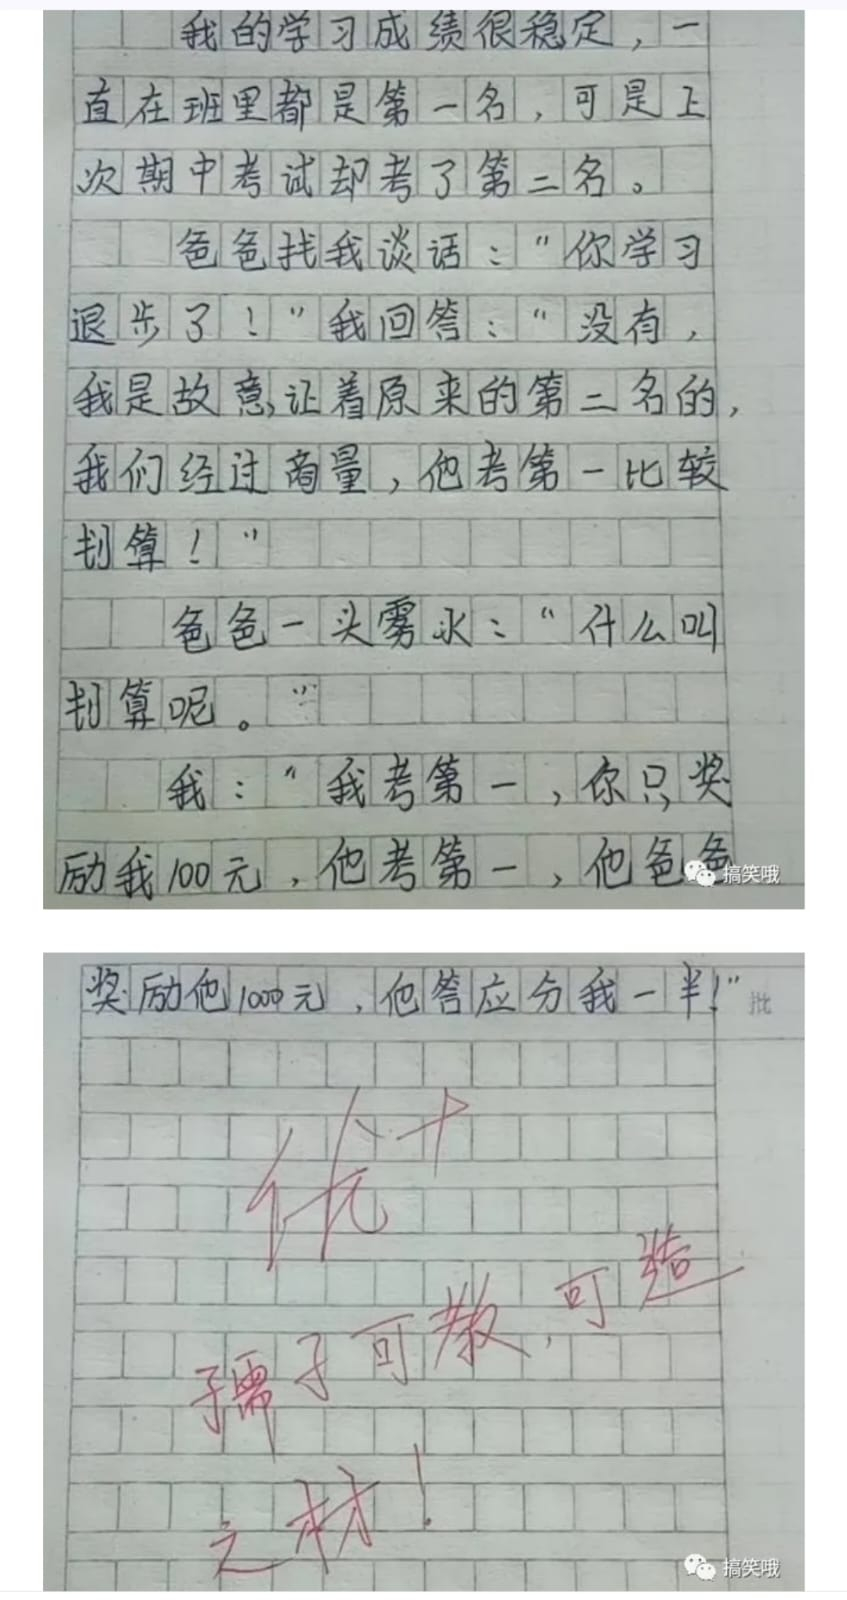 我的学习成绩很稳定，一
直在班里都是第一名，可是上
次期中考试却考了第二名。
爸爸找我谈话：“你学习
退步了！”我回答：“没有，
我是故意让着原来的第二名的，
我们经过商量，他考第一比较
划算！”
爸爸一头雾水：“什么叫
划算呢。”
我：“我考第一，你只奖
励我100元，他考第一，他爸爸
搞笑哦
奖励他1000元，他答应分我一半！”
批
优+
孺子可教，可造
之材！
搞笑哦